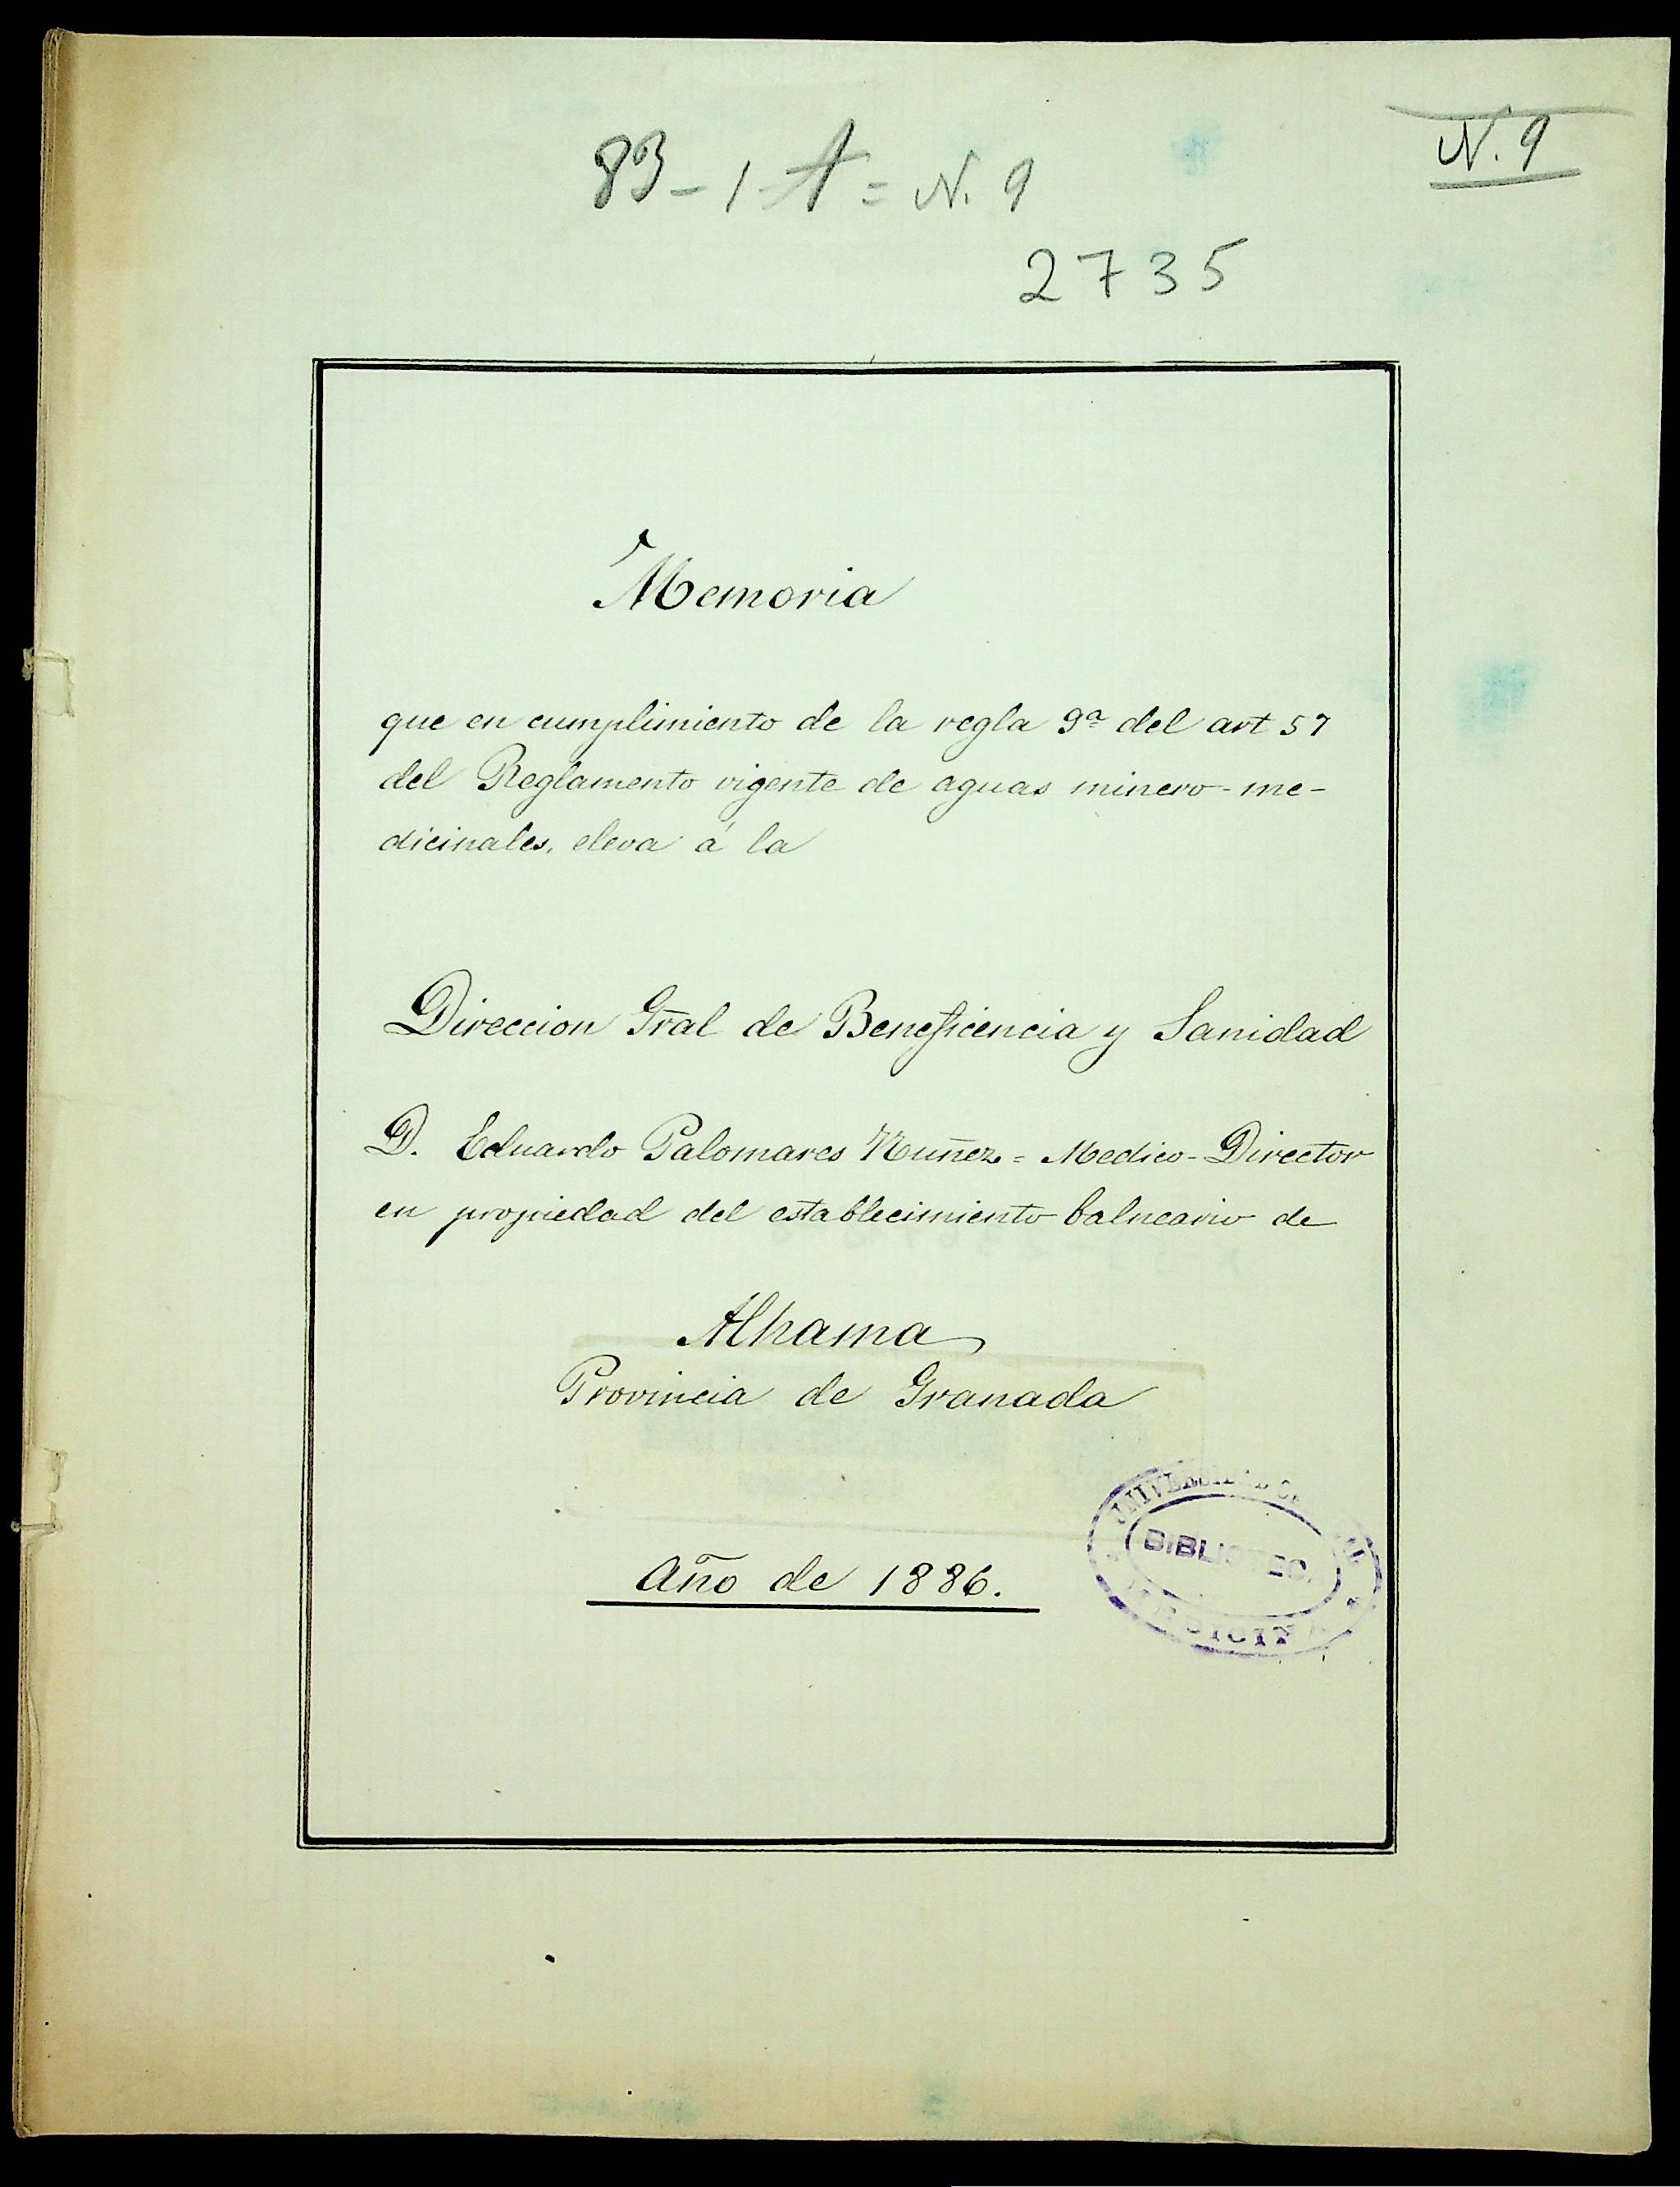 N. 9
83-1-A= N. 9
2735
Memoria
que en cumplimiento de la regla 9ª del art 57
del Reglamento vigente de aguas minero-me-
dicinales, eleva á la
Direccion Gr̃al de Beneficencia y Sanidad
D. Eduardo Palomares Nuñez = Medico-Director
en propiedad del establecimiento balneario de
Alhama
Provincia de Granada
Año de 1886.
BIBLIOTECA
MEDICINA